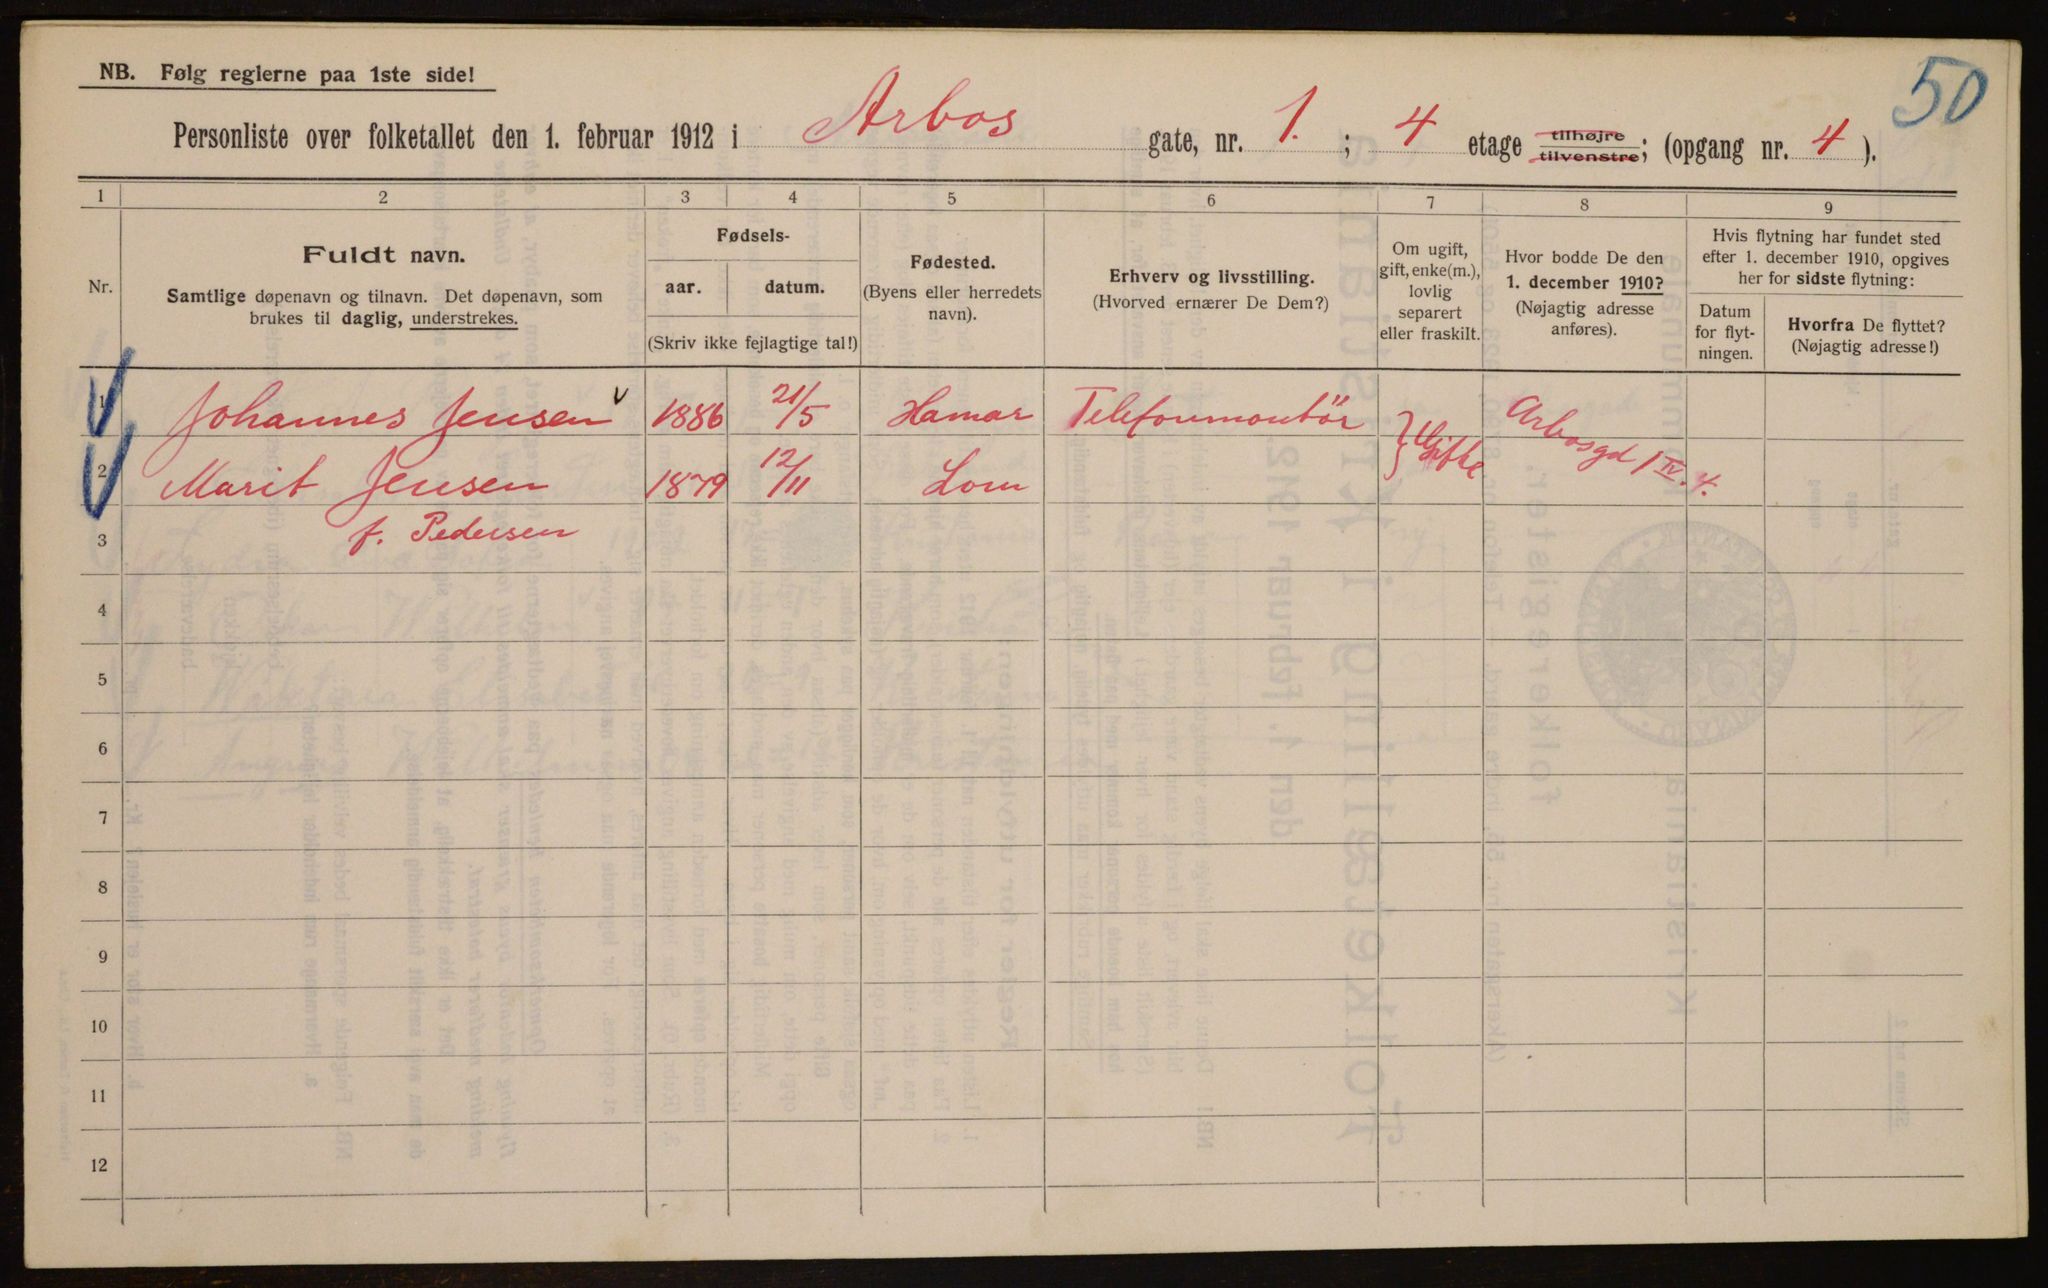 50
NB. Følg reglerne paa 1ste side!
Personliste over folketallet den 1. februar 1912 i Arbos gate, nr. 1. ; 4 etage tilhøjre tilvenstre; (opgang nr. 4 ).
1 2 3 4 5 6 7 8 9
Nr.
Fuldt navn.
Samtlige døpenavn og tilnavn. Det døpenavn, som
brukes til daglig, understrekes.
Fødsels-
aar. datum.
(Skriv ikke fejlagtige tal!)
Fødested.
(Byens eller herredets
navn).
Erhverv og livsstilling.
(Hvorved ernærer De Dem?)
Om ugift,
gift, enke(m.),
lovlig
separert
eller fraskilt.
Hvor bodde De den
1. december 1910?
(Nøjagtig adresse
anføres).
Hvis flytning har fundet sted
efter 1. december 1910, opgives
her for sidste flytning:
Datum
for flyt-
ningen.
Hvorfra De flyttet?
(Nøjagtig adresse!)
1 Johannes Jensen 1886 21/5 Hamar Telefonmontör } Gifte Arbosgd 1 IV. 4.
2 Marit Jensen 1879 12/11 Lom
3 f. Pedersen
4
5
6
7
8
9
10
11
12